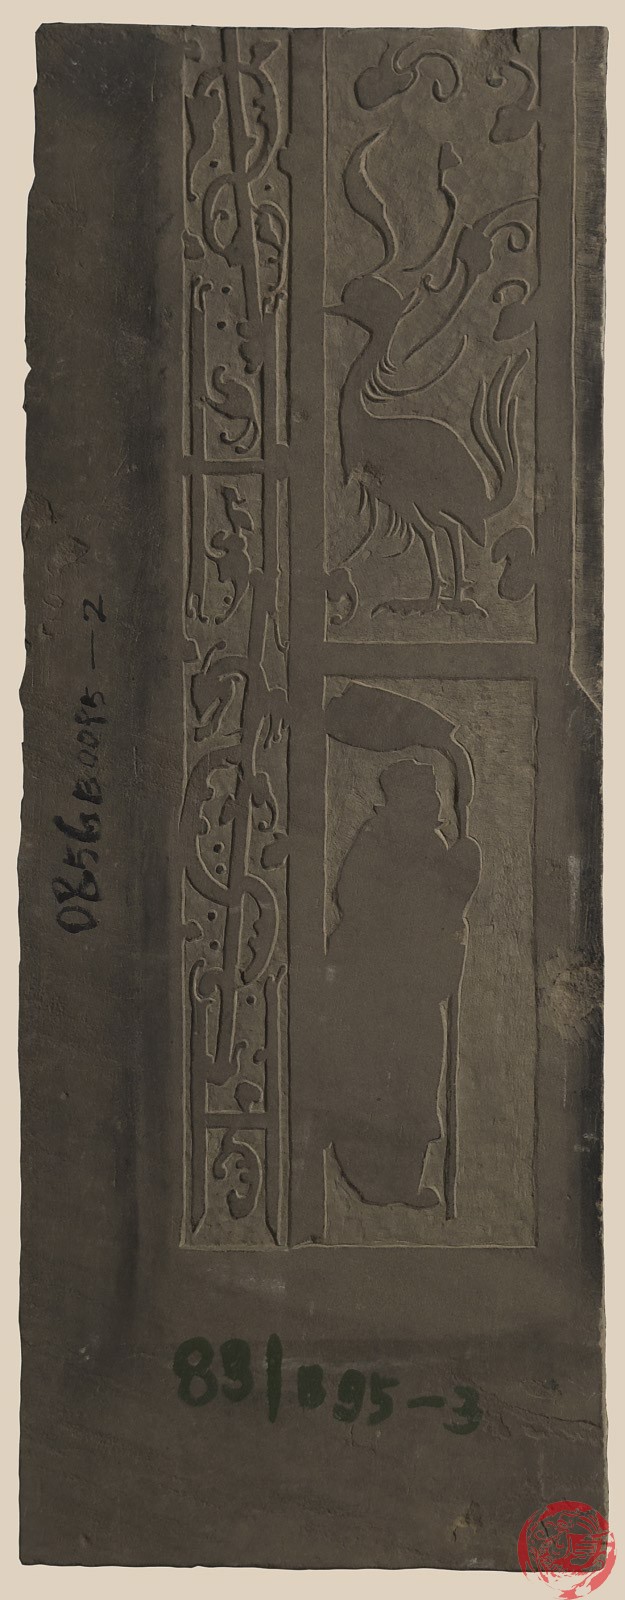 0856B0095-2
83|B95-3